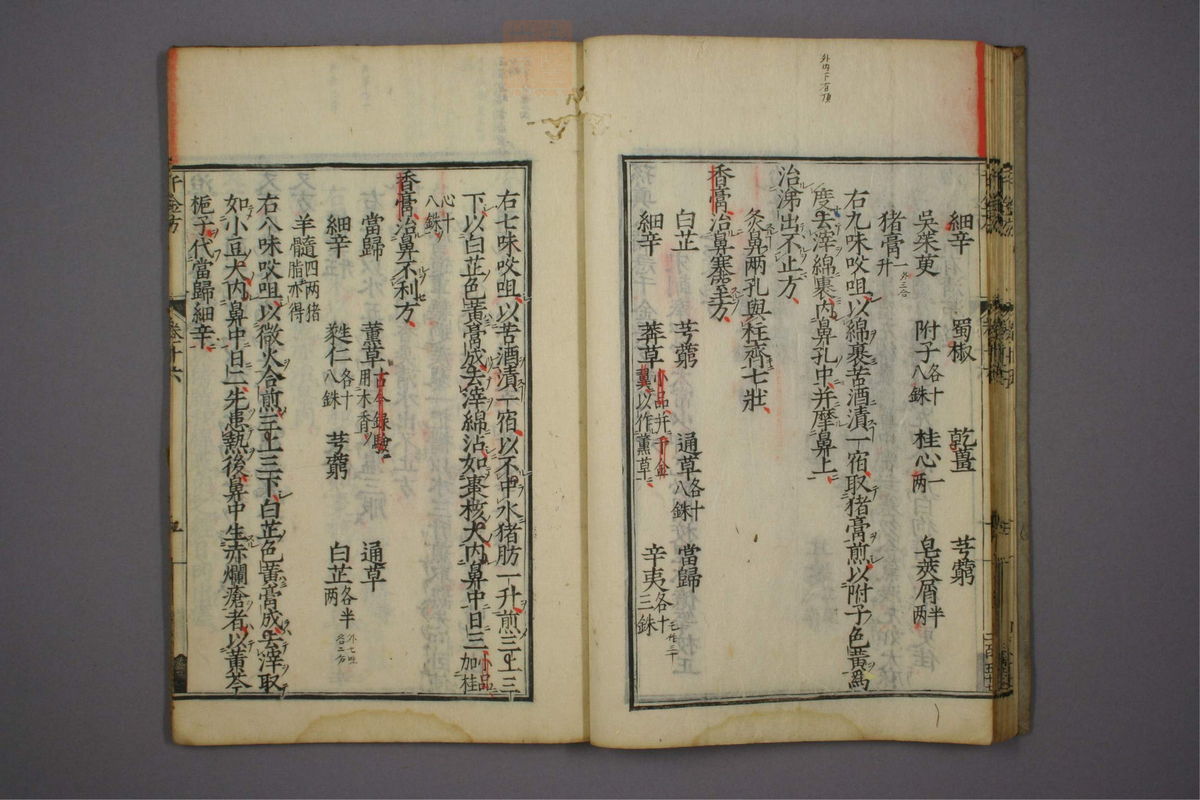 外内下有頂
細辛　蜀椒　乾薑　芎藭
吳茱萸　附子各十八銖　桂心一兩　皂莢屑半兩
猪膏一升
右九味㕮咀以綿裹苦酒漬一宿取猪膏煎以附子色黃爲
度去滓綿裹內鼻孔中并摩鼻上
治涕出不止方
灸鼻兩孔與柱齊七壯
香膏治鼻塞窒方
白芷　芎藭　通草各十八銖　當歸
細辛　莽草小品并千金翼以作薰草　辛夷各三十銖
右七味㕮咀以苦酒漬一宿以不中水猪肪一升煎三上三
下以白芷色黃膏成去滓綿沾如棗核大內鼻中日三小品加桂
心十八銖
香膏治鼻不利方
當歸　薰草古今錄驗用木香　通草
細辛　蕤仁各十八銖　芎藭　白芷各半兩
羊髓四兩猪脂亦得
右八味㕮咀以微火合煎三上三下白芷色黃膏成去滓取
如小豆大內鼻中日二先患熱後鼻中生赤爛瘡者以黃芩
梔子代當歸細辛
千金方
卷十六
五